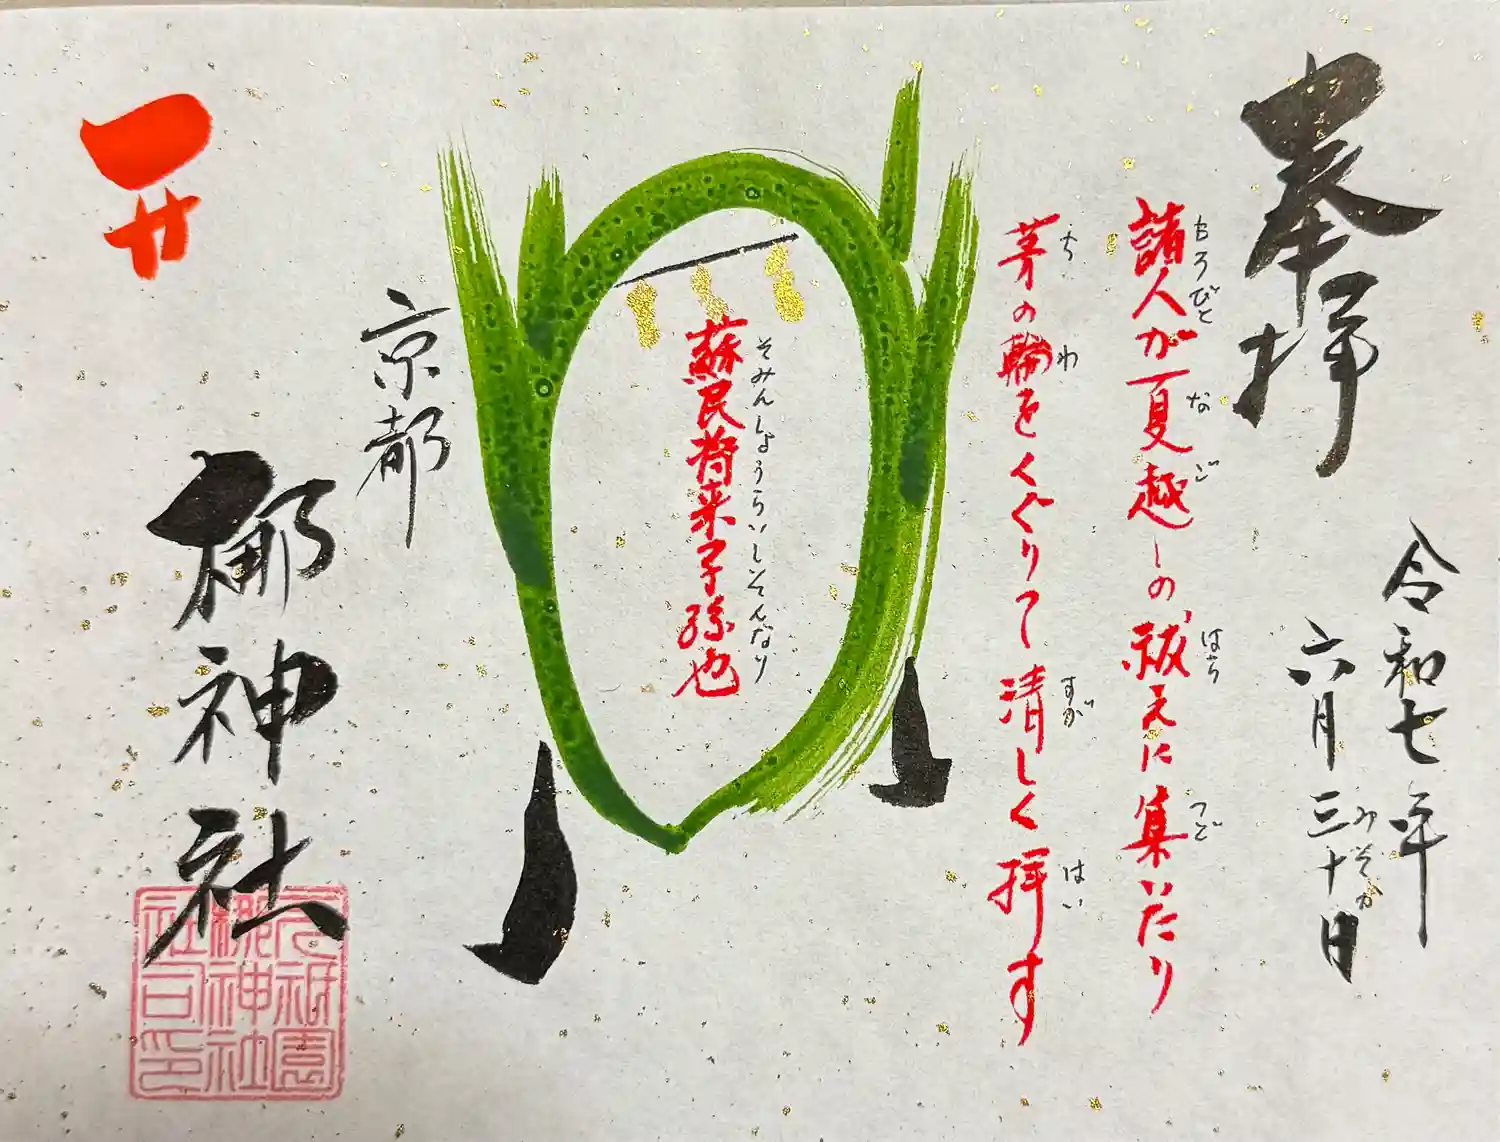 奉拝
令和七年
六月三十日
みそか
諸人が夏越しの祓えに集いたり
もろびと
なご
はら
つど
茅の輪をくぐりて清しく拝す
ち
わ
すが
はい
蘇民将来子孫也
そみんしょうらいしそんなり
京都
梛神社
元祇園
梛神社
社司印